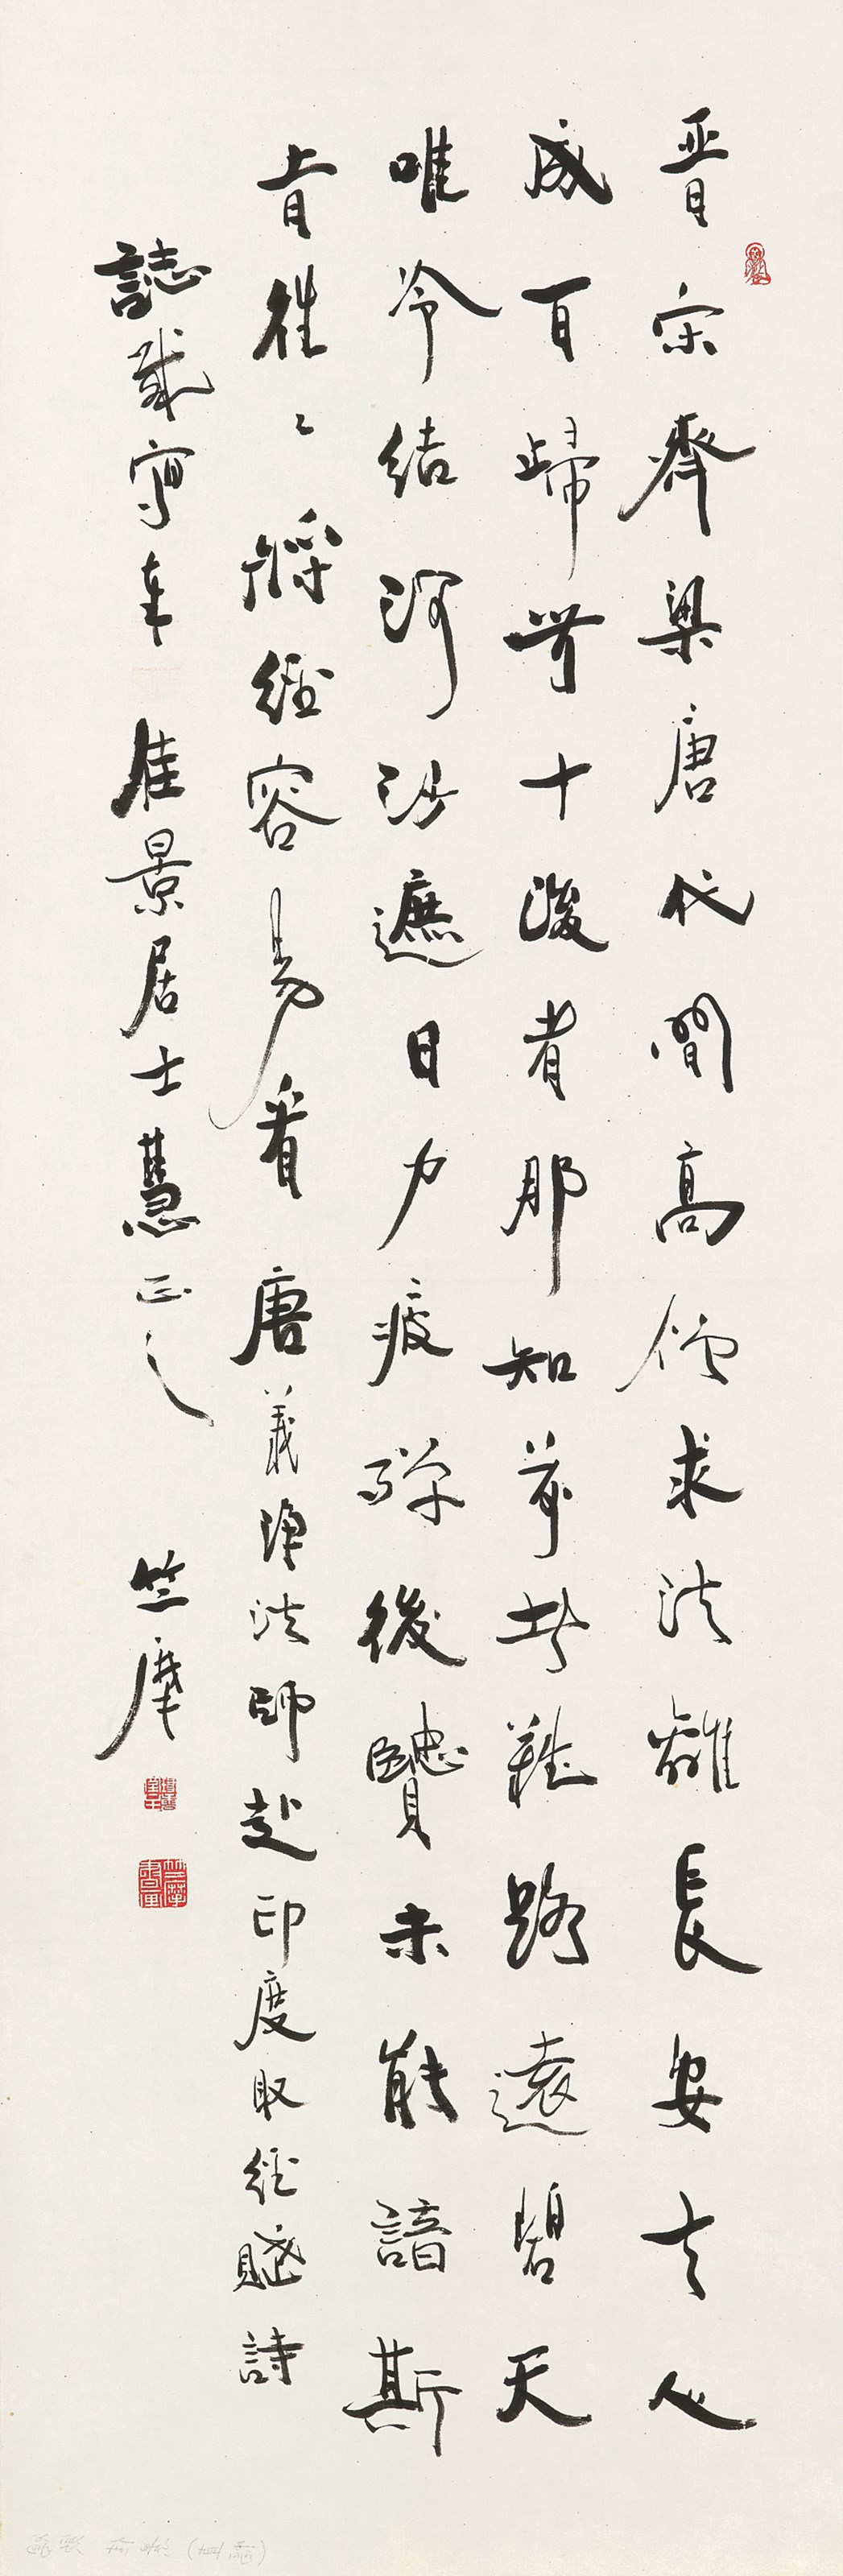 晋宋齊梁唐代間高僧求法離長安去人
成百歸無十後者那知前者難路遠碧天
唯冷結河沙遮日力疲殫後賢未能諳斯
旨往々將經容易看 唐義淨法師赴印度取經賦詩
誌感寫奉 佳景居士慧正之 竺摩